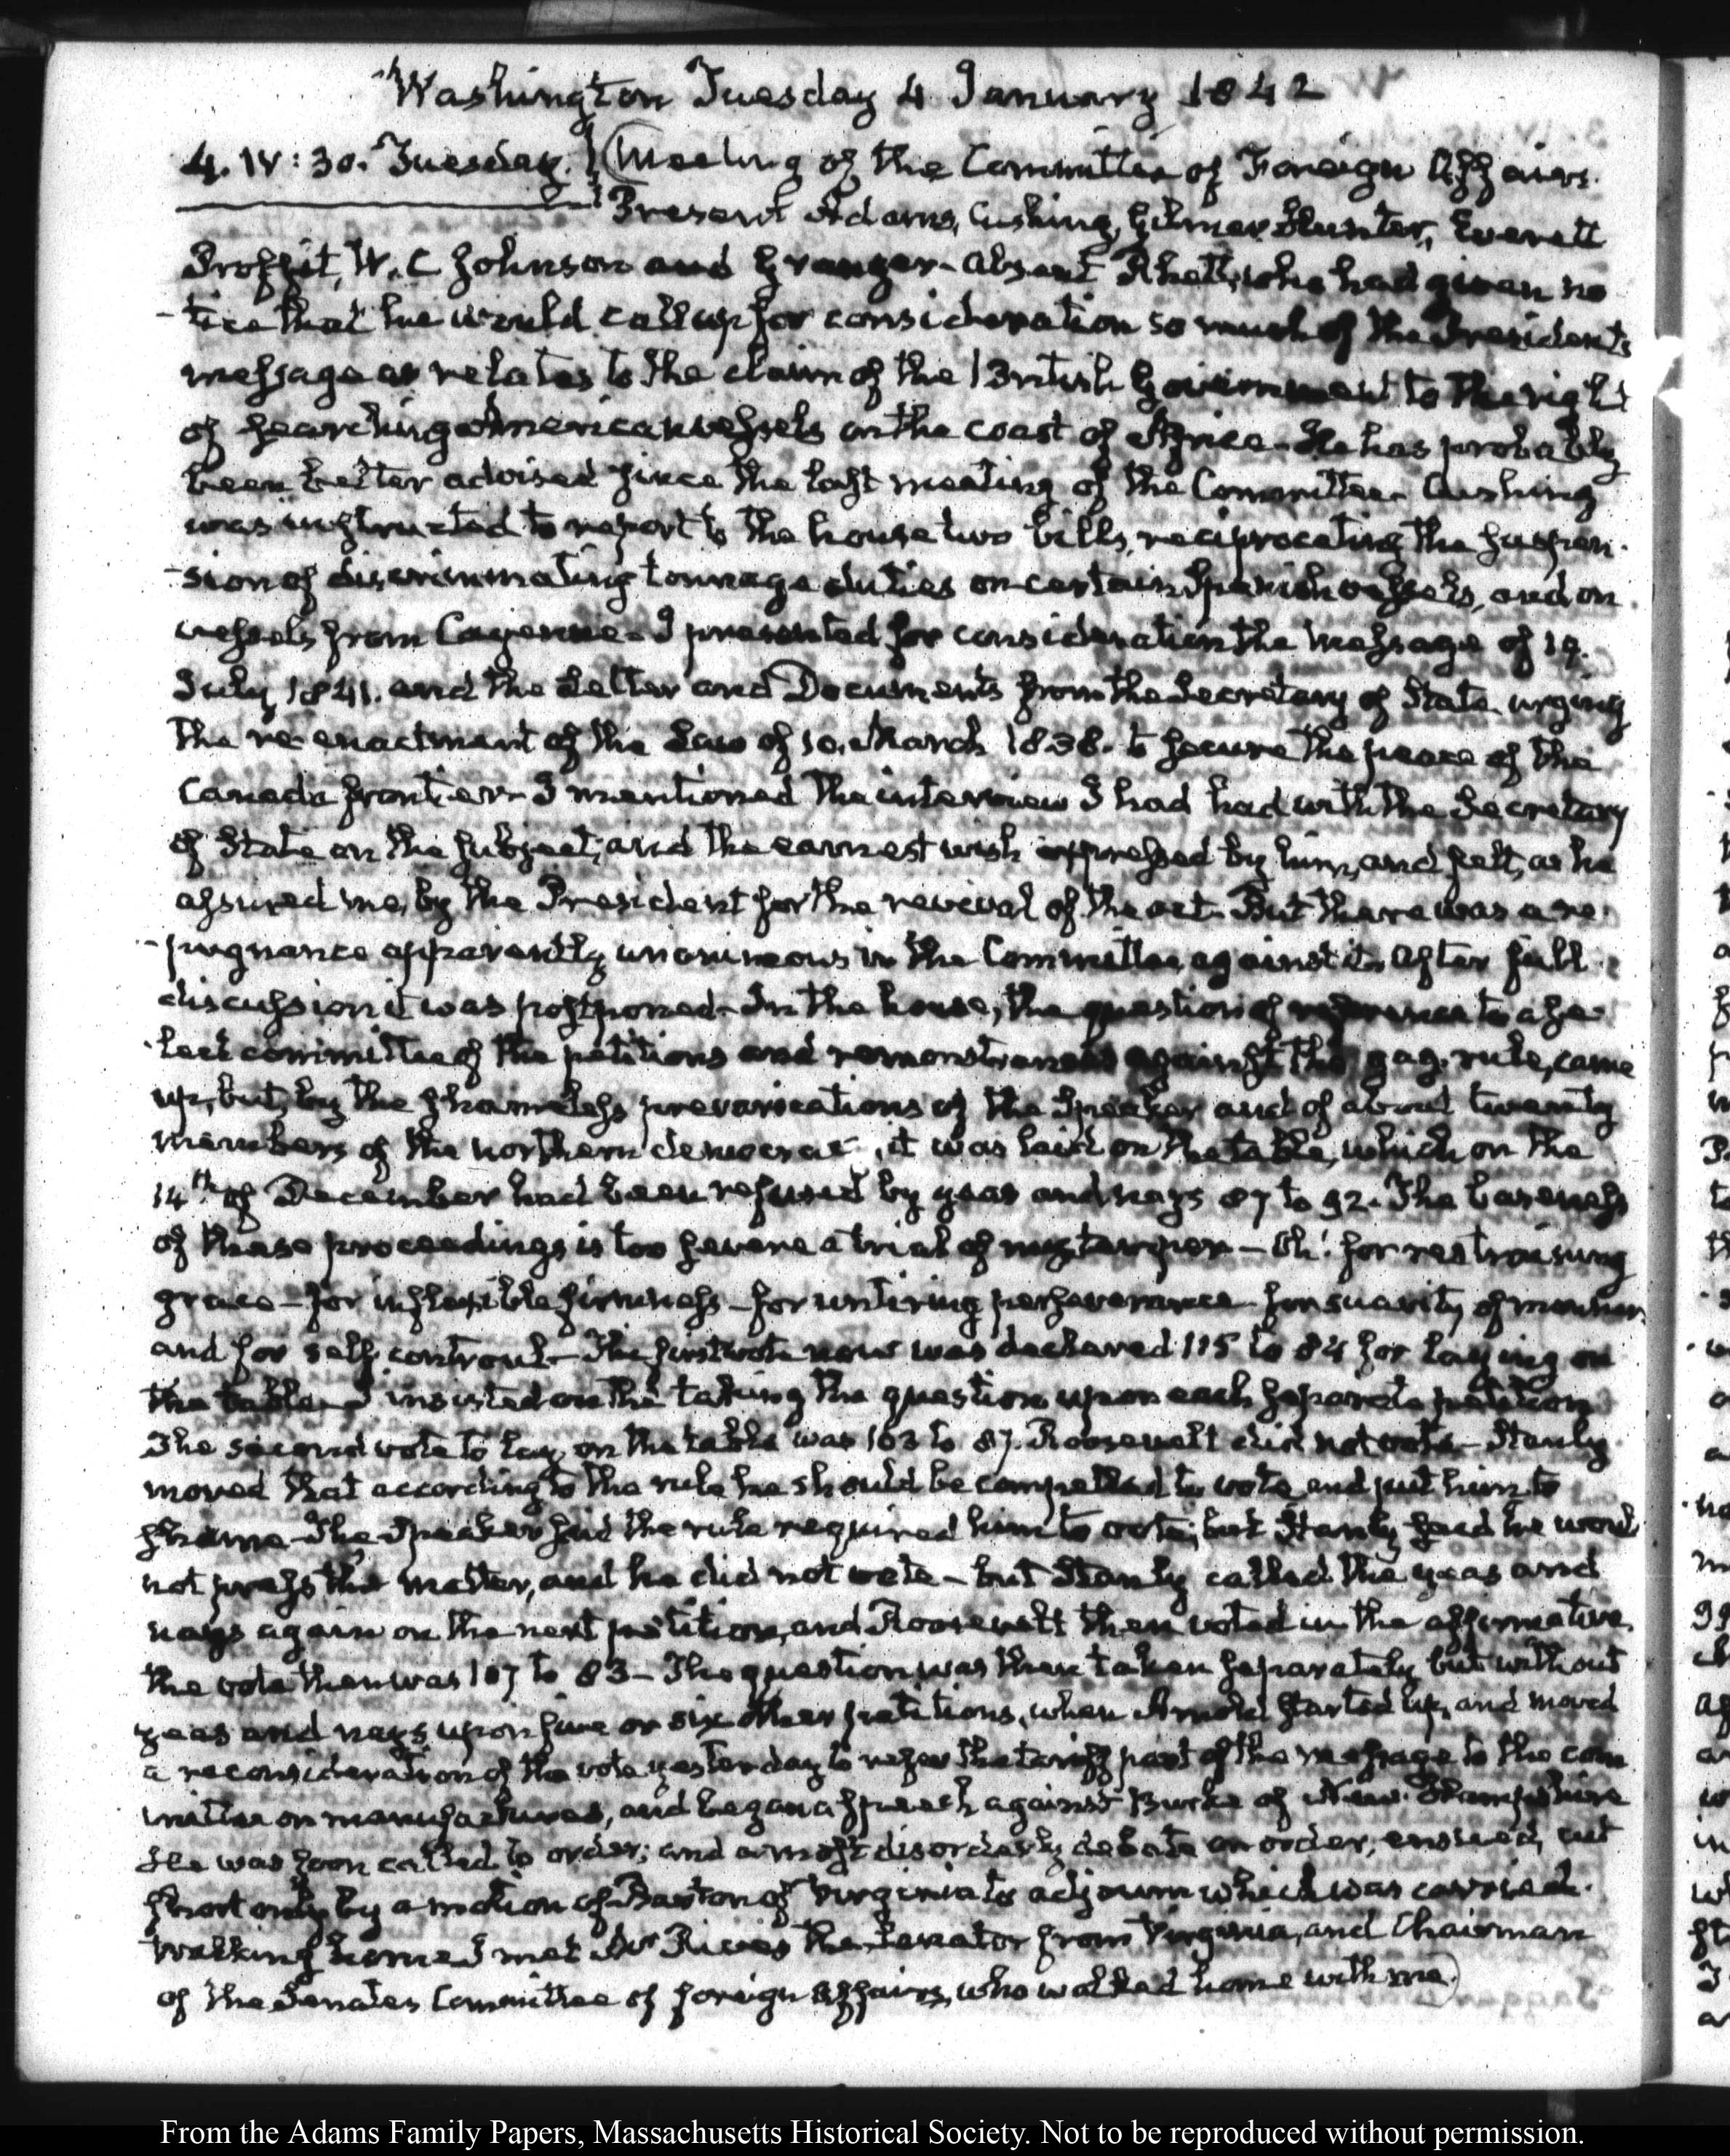 Washington Tuesday 4 January 1842
4. IV:30. Tuesday. Meeting of the Committee of Foreign Affairs.
Present Adams, Cushing, Gilmer, Hunter, Everett
Proffit, W. C Johnson and Granger – absent Rhett, who had given no
-tice that he would call up for consideration so much of the Presidents
message as relates to the claim of the British Government to the right
of searching American vessels on the coast of Africa – He has probably
been better advised since the last meeting of the Committee – Cushing
was instructed to report to the house two bills, reciprocating the suspen-
-sion of discriminating tonnage duties on certain Spanish vessels, and on
vessels from Cayenne – I presented for consideration the Message of 19.
July 1841. and the Letter and Documents from the Secretary of State urging
the re-enactment of the Law of 10. March 1838. to secure the peace of the
Canada frontier – I mentioned the interview I had had with the Secretary
of State on the subject; and the earnest wish expressed by him, and felt, as he
assured me, by the President for the revival of the act. But there was a re-
-pugnance apparently unanimous in the Committee against it. After full
discussion it was postponed – In the house, the question of reference to a se-
-lect committee of the petitions and remonstrances against the gag-rule, came
up, but, by the shameless prevarications of the Speaker and of about twenty
members of the northern democrac , it was laid on the table, which on the
14th of December had been refused by yeas and nays 87 to 92. The baseness
of these proceedings is too severe a trial of my temper – Oh! for restraining
grace – for inflexible firmness – for untiring perseverance – for suavity of manner,
and for self controul – The first vote now was declared 115 to 84 for laying on
the table – I insisted on the taking the question upon each separate petition
The second vote to lay on the table was 103 to 87. Roosevelt did not vote – Stanly
moved that according to the rule he should be compelled to vote and put him to
shame – The Speaker said the rule required him to vote; but Stanly said he would
not press the matter, and he did not vote – but Stanly called the yeas and
nays again on the next petition, and Roosevelt then voted in the affirmative,
the vote then was 107 to 83 – The question was then taken separately but without
yeas and nays upon five or six other petitions, when Arnold started up, and moved
a reconsideration of the vote yesterday to refer the tariff part of the message to the com
mittee on manufactures, and began a speech against Burke of New-Hampshire
He was soon called to order; and a most disorderly debate on order, ensued, cut
short only by a motion of Barton of Virginia to adjourn which was carried.
Walking home I met Mr Rives the Senator from Virginia, and Chairman
of the Senates Committee of foreign Affairs, who walked home with me.
From the Adams Family Papers, Massachusetts Historical Society. Not to be reproduced without permission.